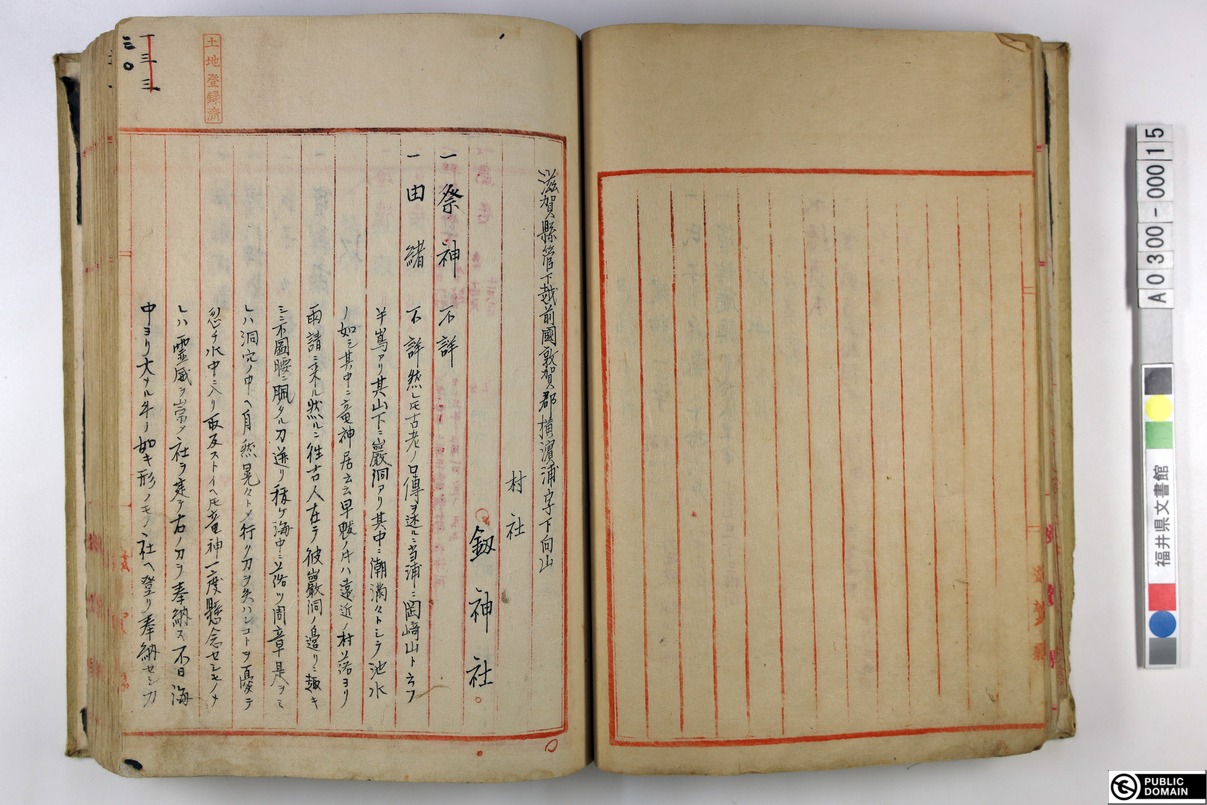 滋賀縣管下越前國敦賀郡横濱浦字下向山
村社
劔神社
一祭神 不詳
一由緒 不詳然レ𪜈古老ノ口傳ヲ述ルニ当浦ニ岡﨑山ト云フ
半嶌アリ其山下ニ巖洞アリ其中ニ潮満々トシテ池水
ノ如シ其中ニ竜神居云云早魃ノ𪜈ハ遠近ノ村落ヨリ
雨請ニ来ル然ルニ往古人在テ彼巖洞ノ邉リニ趣キ
シニ不圖腰ニ佩タル刀迯リ稜ケ海中ニ落ツ周章是ヲミ
レハ洞穴ノ中ヘ自然晃々トメ行ク刀ヲ失ハンコトヲ憂テ
忽チ水中ニ入リ取及ストイヘ𪜈竜神一度懸念セシモノメ
レハ霊威ヲ崇メ社ヲ建テ右ノ刀ヲ奉納ス不日海
中ヨリ大ナル牛ノ如キ形ノモノ社ヘ登リ奉納セシ刀
土地登録済
一三三
三〇
A0300-00015
福井県文書館
PUBLIC DOMAIN